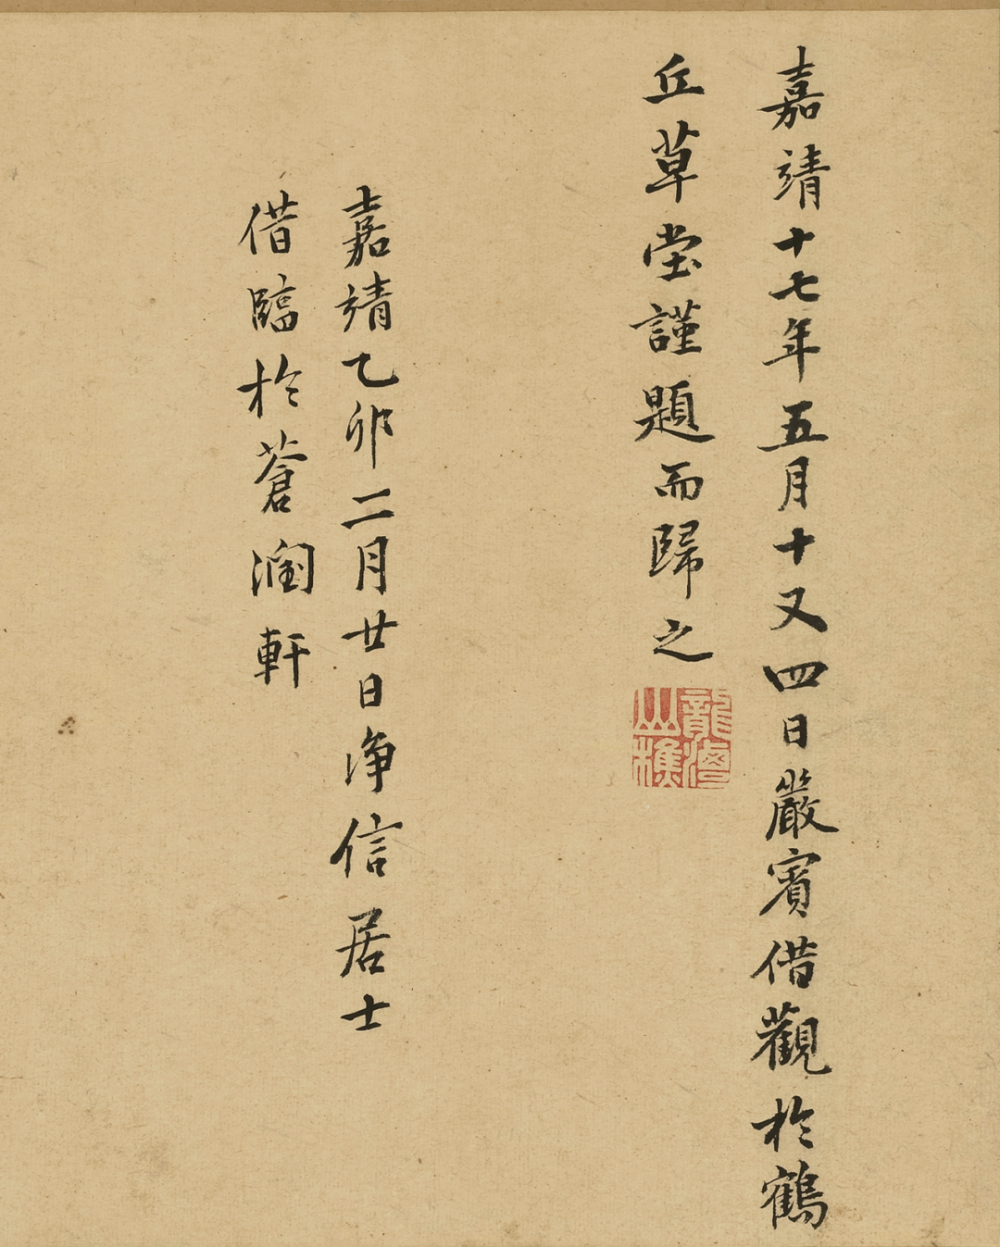 嘉靖十七年五月十又四日嚴賓借觀於鶴
丘草堂謹題而歸之
嘉靖乙卯二月廿日淨信居士
借臨於蒼潤軒